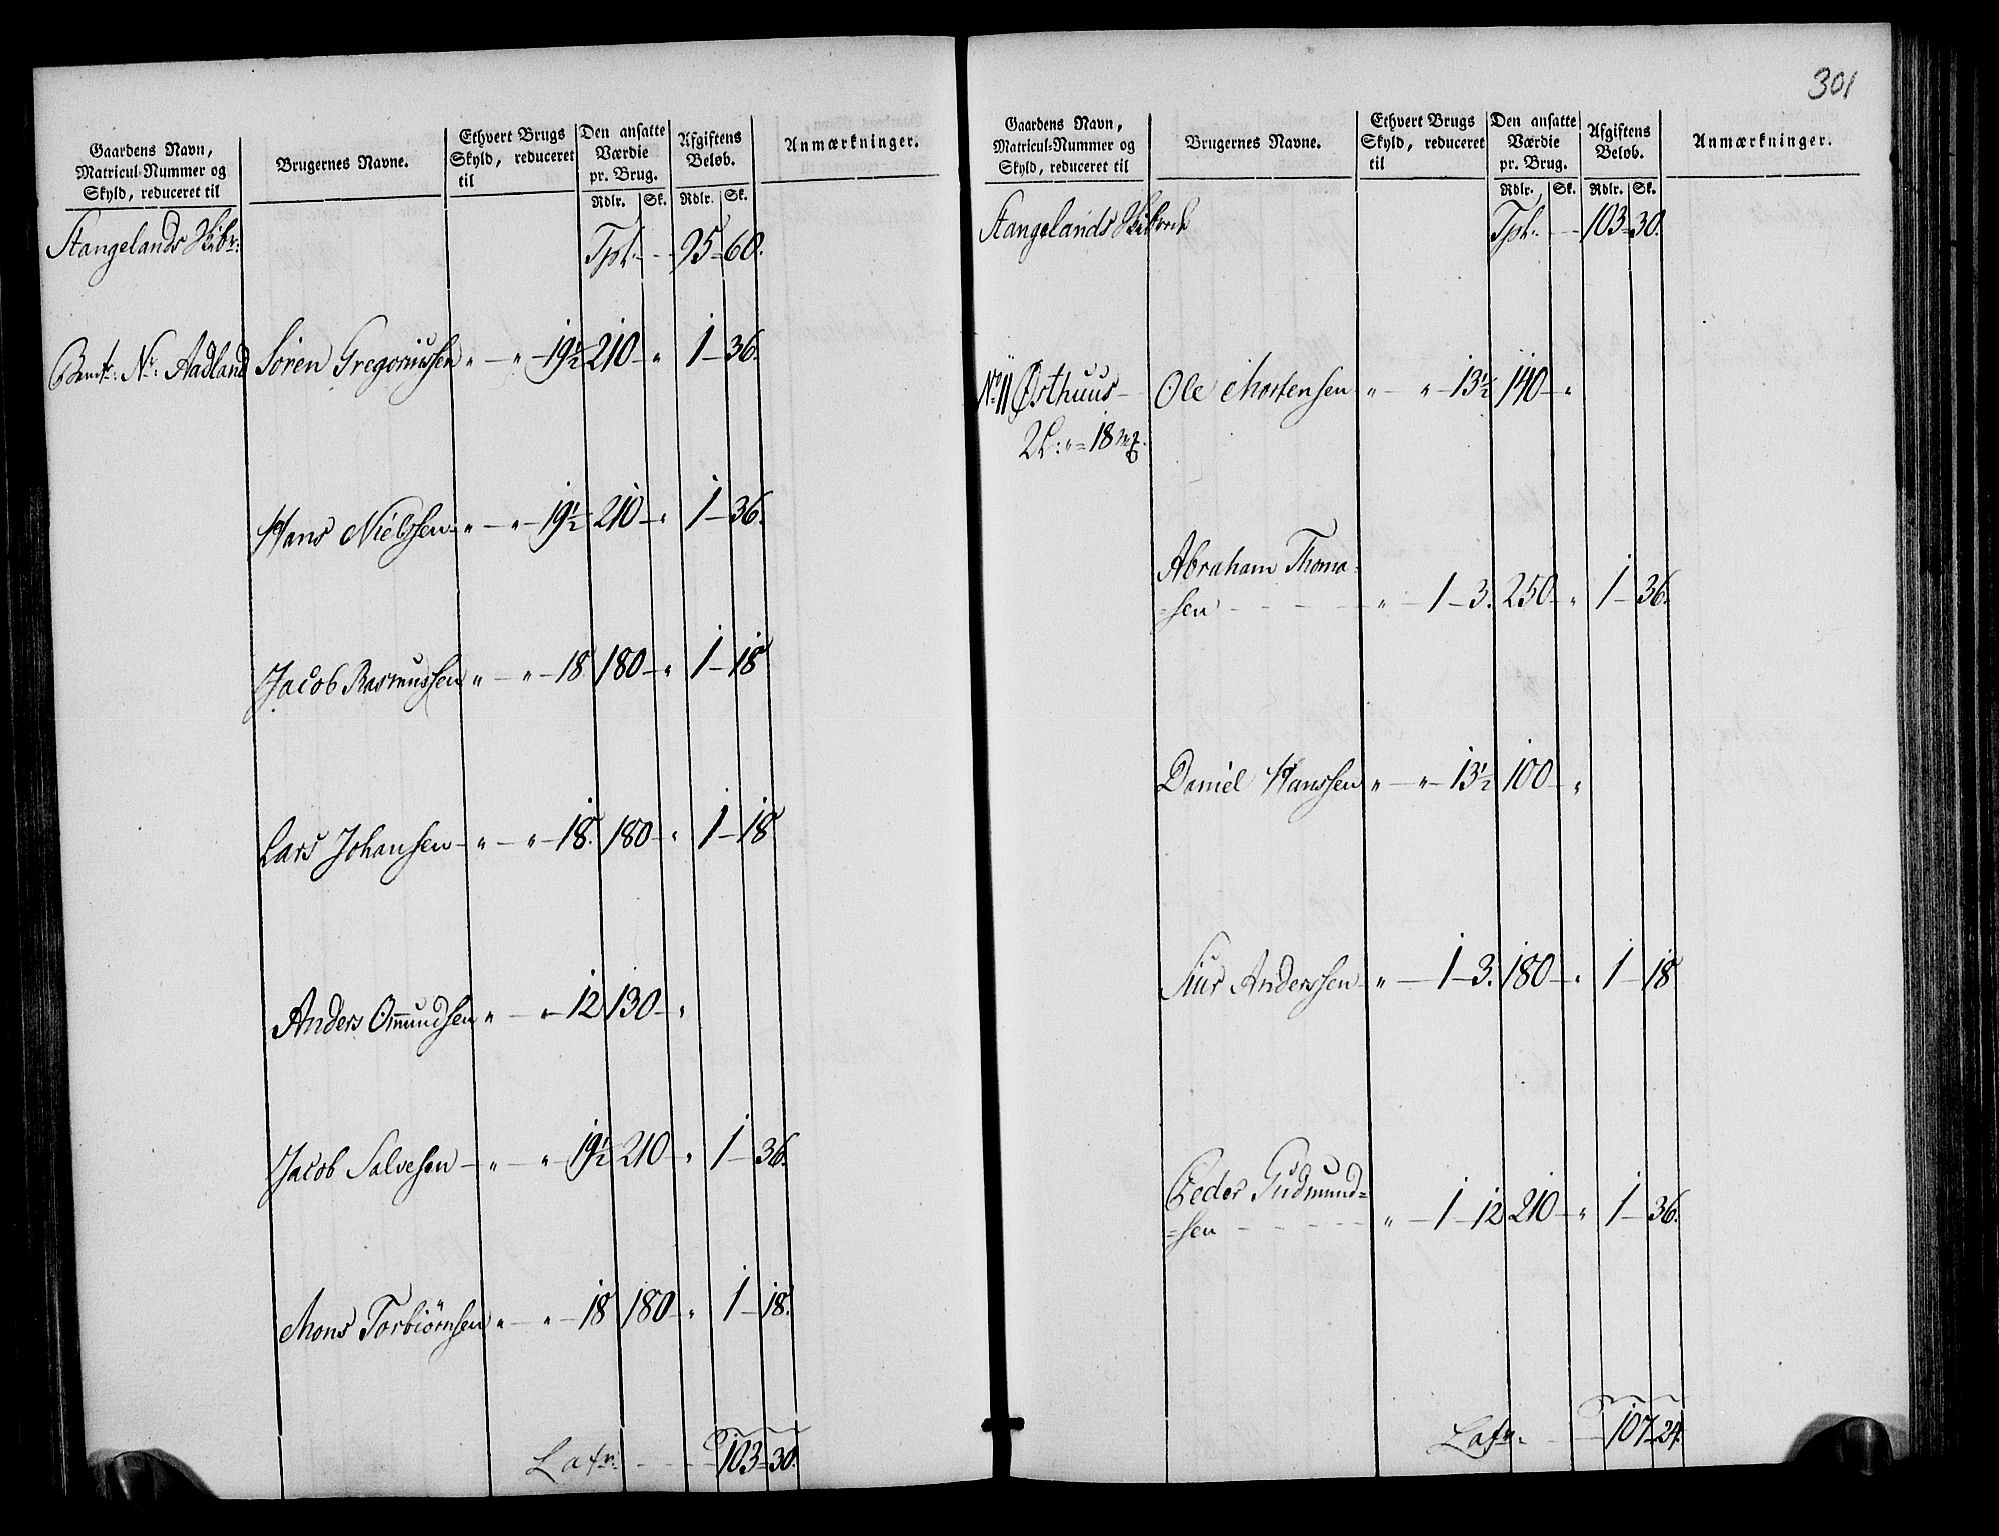 Gaardens Navn,
Matricul-Nummer og
Skyld, reduceret til
Brugernes Navne.
Ethvert Brugs
Skyld, reduceret
til
Den ansatte
Værdie
pr. Brug.
Rdlr. Sk.
Afgiftens
Beløb.
Rdlr. Sk.
Anmærkninger.
Stangelands Skibr:
Tpt: - - 95 - 60.
Aadland Søren Gregoriussen „ - „ - 19½ 210 - „ 1 - 36.
Hans Nielssen - „ - „ - 19½ 210 - „ 1 - 36.
Jacob Rasmussen „ - „ - 18 180 - „ 1 - 18
Lars Johansen - „ - „ - 18. 180 - „ 1 - 18
Anders Omundsen „ - „ - 12 130 - „
Jacob Salvesen - „ - „ 19½ 210 - „ 1 - 36.
Mons Torbiørnsen „ - „ - 18 180 - „ 1 - 18.
Latr: - - - 103 - 30.
301
Gaardens Navn,
Matricul-Nummer og
Skyld, reduceret til
Brugernes Navne.
Ethvert Brugs
Skyld, reduceret
til
Den ansatte
Værdie
pr. Brug.
Rdlr. Sk.
Afgiftens
Beløb.
Rdlr. Sk.
Anmærkninger.
Stangelands Skibrede
Tpt: - - 103 - 30.
No 11 Østhuus - Ole Mortensen „ - „ - 13½ 140 - „
18
Abraham Thoma=
=sen - - - - „ - 1 - 3. 250 - „ 1 - 36.
Daniel Hanssen „ - „ - 13½ 100 - „
Siur Anderssen - „ - 1 - 3. 180 - „ 1 - 18
Peder Gudmund=
=sen - - - - „ - 1 - 12 210 - „ 1 - 36.
Latr: - - 107 - 24.